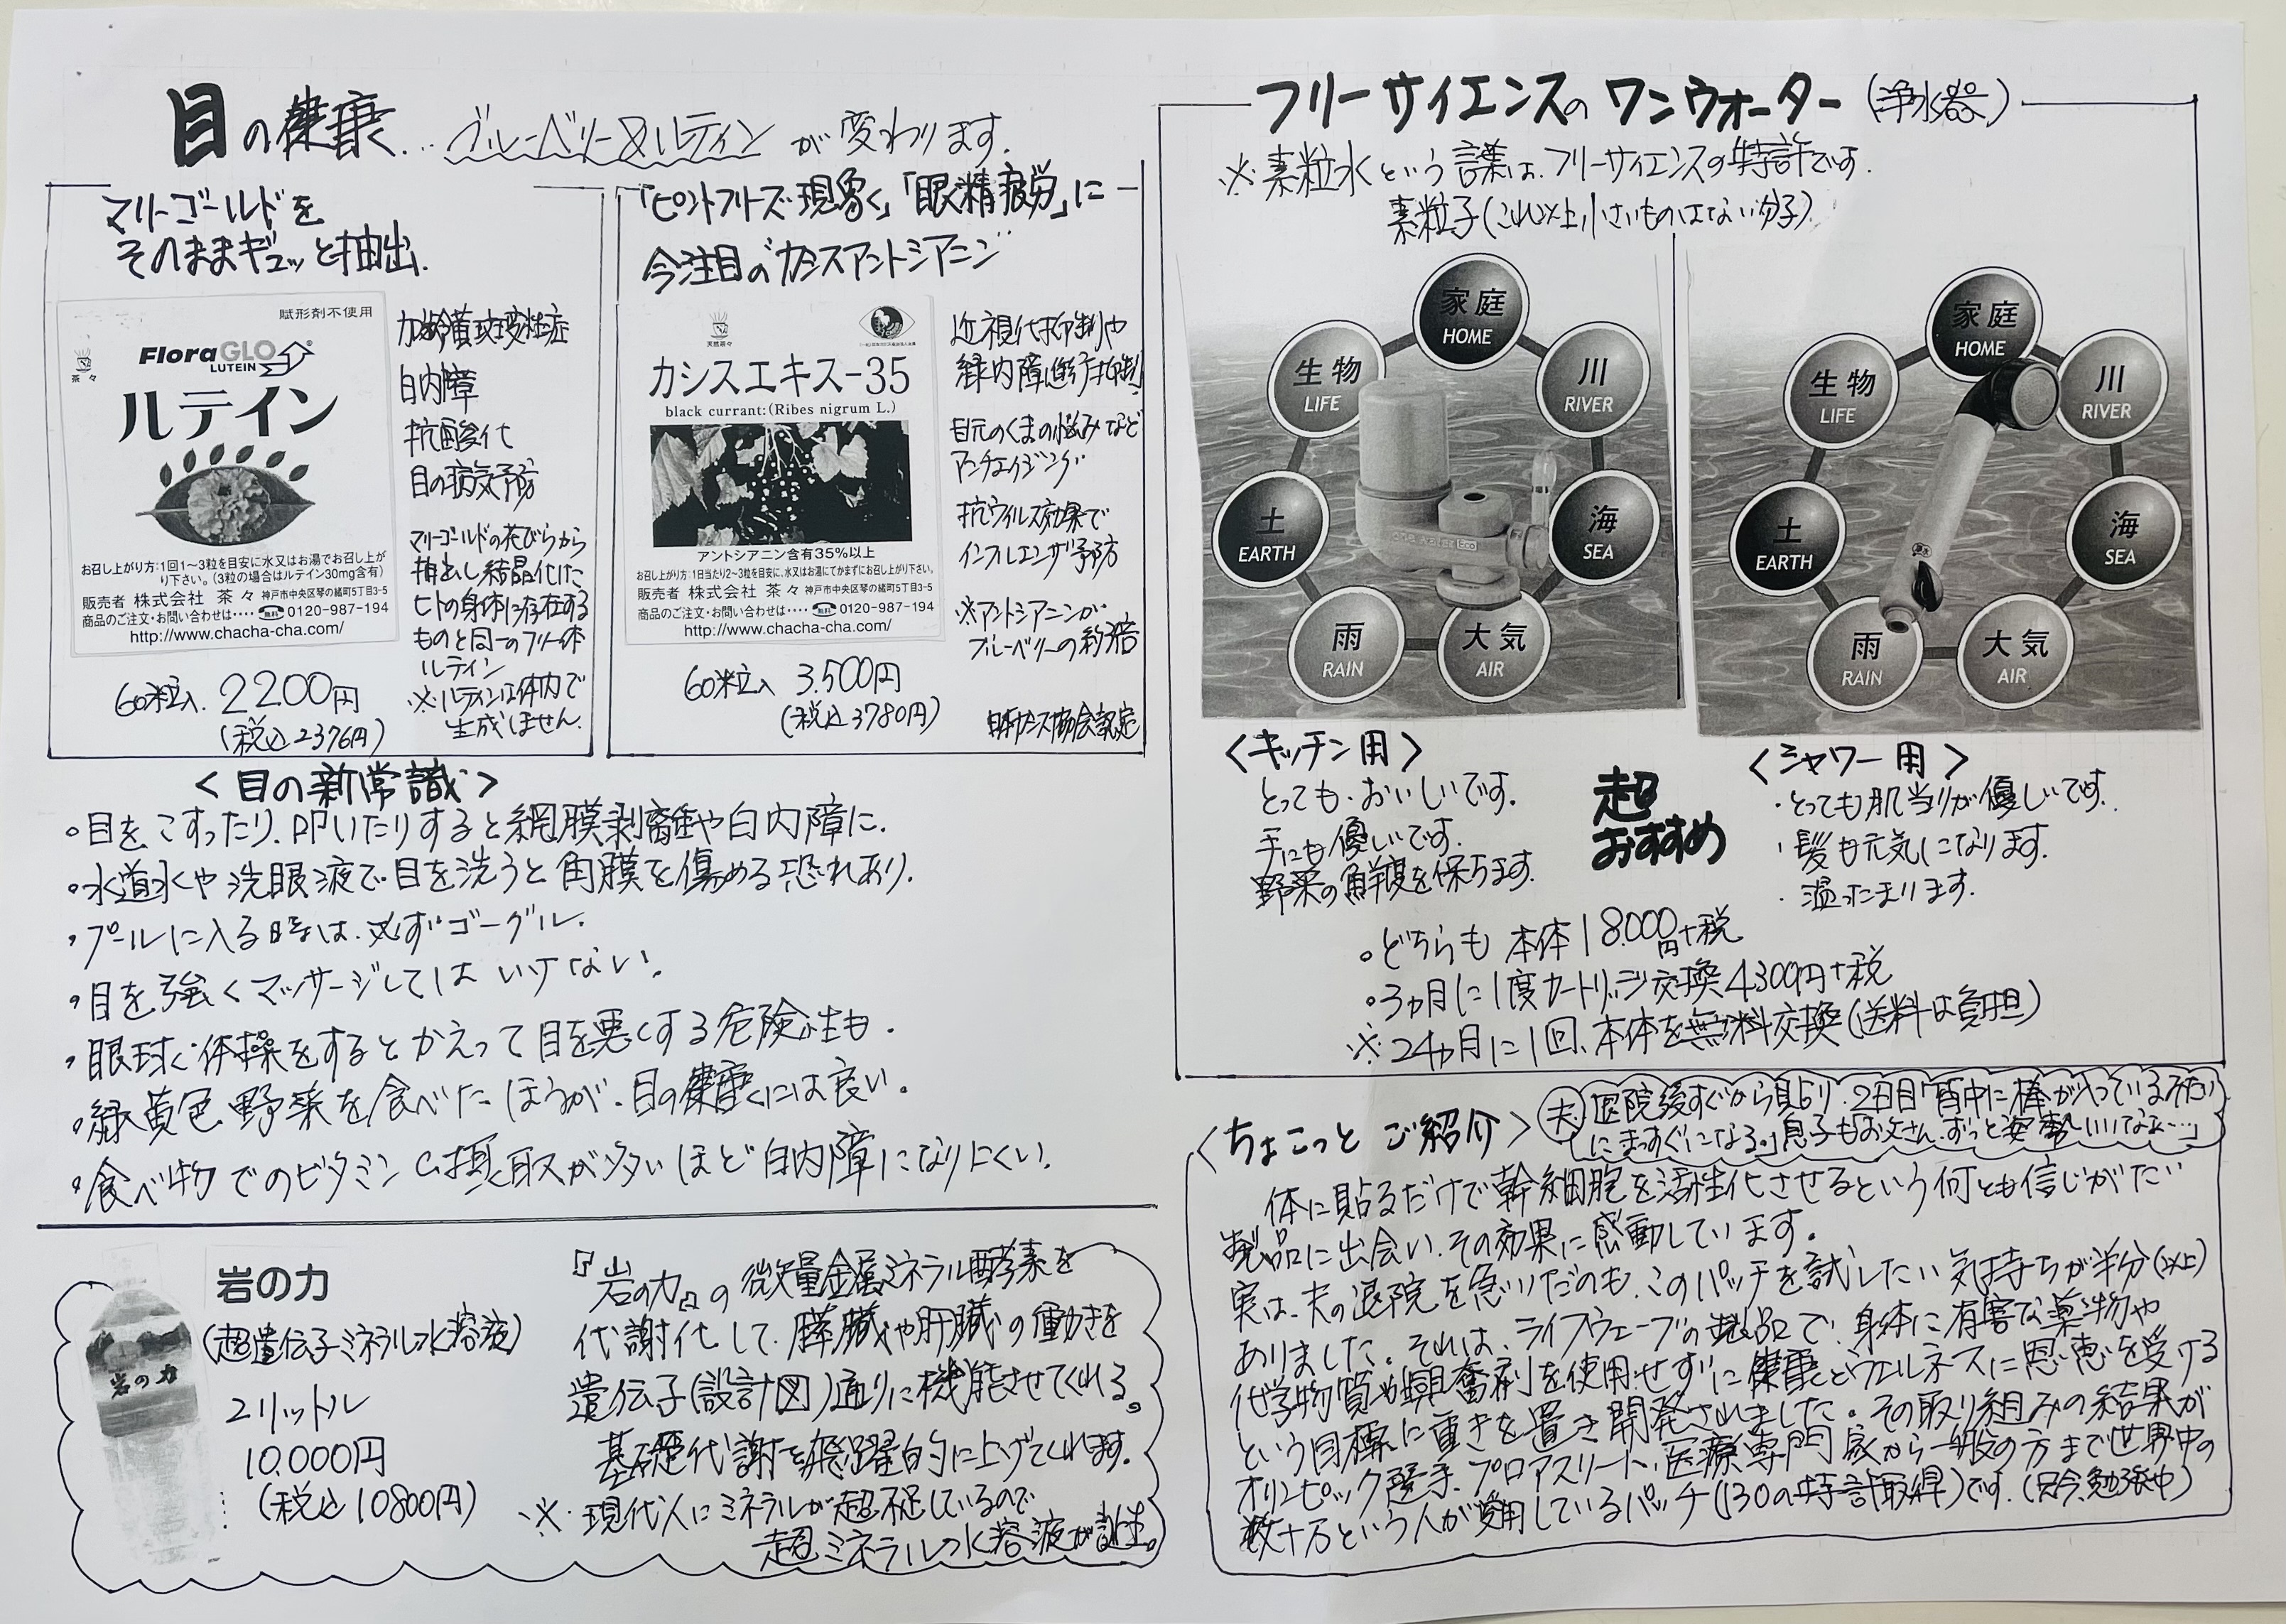 目の健康…ブルーベリー&ルテインが変わります.
マリーゴールドを
そのままギュッと抽出.
賦形剤不使用
茶々
FloraGLO
LUTEIN
ルテイン
お召し上がり方:1回1〜3粒を目安に水又はお湯でお召し上が
り下さい。(3粒の場合はルテイン30mg含有)
販売者 株式会社 茶々 神戸市中央区琴ノ緒町5丁目3-5
商品のご注文・お問い合わせは‥‥ 無料 0120-987-194
http://www.chacha-cha.com/
60粒入. 2200円
(税込2376円)
加齢黄斑変性症
白内障
抗酸化
目の病気予防
マリーゴールドの花びらから
抽出し結晶化した
ヒトの身体に存在する
ものと同一のフリー体
ルテイン
※ルテインは体内で
生成しません.
「ピントフリーズ現象」「眼精疲労」に
今注目の"カシスアントシアニン"
天然茶々
カシスエキス-35
black currant:(Ribes nigrum L.)
アントシアニン含有35%以上
お召し上がり方:1日当たり2〜3粒を目安に、水又はお湯にてかまずにお召し上がり下さい。
販売者 株式会社 茶々 神戸市中央区琴ノ緒町5丁目3-5
商品のご注文・お問い合わせは‥‥ 無料 0120-987-194
http://www.chacha-cha.com/
60粒入 3.500円
(税込3780円)
近視化抑制や
緑内障進行抑制
目元のくまの悩みなど
アンチエイジング
抗ウイルス効果で
インフルエンザ予防
※アントシアニンが
ブルーベリーの約3倍
日本カシス協会認定
<目の新常識>
・目をこすったり、叩いたりすると網膜剥離や白内障に.
・水道水や洗眼液で目を洗うと角膜を傷める恐れあり.
・プールに入る時は、必ずゴーグル.
・目を強くマッサージしてはいけない.
・眼球体操をするとかえって目を悪くする危険性も.
・緑黄色野菜を食べたほうが、目の健康には良い.
・食べ物でのビタミンC摂取が多いほど白内障になりにくい.
岩の力
岩の力
(超遺伝子ミネラル水溶液)
2リットル
10.000円
(税込10800円)
『岩の力』の微量金属ミネラル酵素を
代謝化して、膵臓や肝臓の働きを
遺伝子(設計図)通りに機能させてくれる。
基礎代謝を飛躍的に上げてくれます.
※現代人にミネラルが超不足しているので
超ミネラル水溶液が誕生。
フリーサイエンスの ワンウォーター(浄水器)
※素粒水という言葉は、フリーサイエンスの特許です.
素粒子(これ以上小さいものはない分子)
家庭
HOME
生物
LIFE
川
RIVER
土
EARTH
海
SEA
雨
RAIN
大気
AIR
家庭
HOME
生物
LIFE
川
RIVER
土
EARTH
海
SEA
雨
RAIN
大気
AIR
<キッチン用>
とっても、おいしいです.
手にも優しいです.
野菜の鮮度を保ちます.
超
おすすめ
<シャワー用>
・とっても肌当りが優しいです.
・髪も元気になります.
・温まります.
・どちらも 本体18.000円+税
・3ヵ月に1度カートリッジ交換4.300円+税
※24ヵ月に1回、本体を無料交換(送料は負担)
<ちょこっと ご紹介>
夫 医院後すぐから貼り、2日目「背中に棒が入っているみたい
にまっすぐになる。」息子も「お父さん、ずっと姿勢いいなぁ…」
体に貼るだけで幹細胞を活性化させるという何とも信じがたい
製品に出会い、その効果に感動しています.
実は、夫の退院を急いだのも、このパッチを試したい気持ちが半分(以上)
ありました。それは、ライフウェーブの製品で、身体に有害な薬物や
化学物質や興奮剤を使用せずに健康とウエルネスに恩恵を受ける
という目標に重きを置き開発されました。その取り組みの結果が
オリンピック選手、プロアスリート、医療専門家から一般の方まで世界中の
数十万という人が愛用しているパッチ(130の特許取得)です.(只今、勉強中)